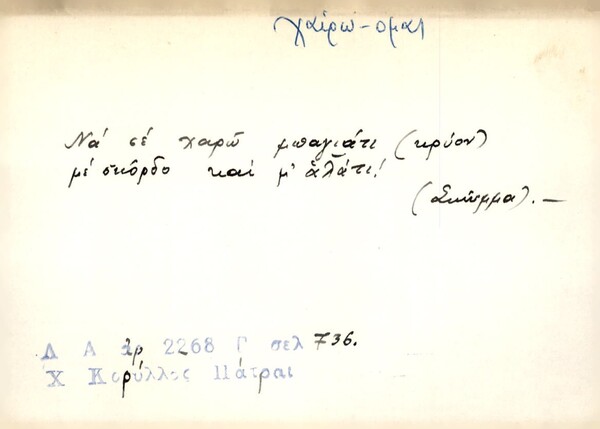 χαίρω-ομαι
Νά σέ χαρῶ μπαγιάτι (κρύον)
μέ σκόρδο καί μ' ἁλάτι!
(Σκῶμμα). —
Λ Α ἀρ 2268 Γ σελ 736.
Χ Κορύλλος Πάτραι